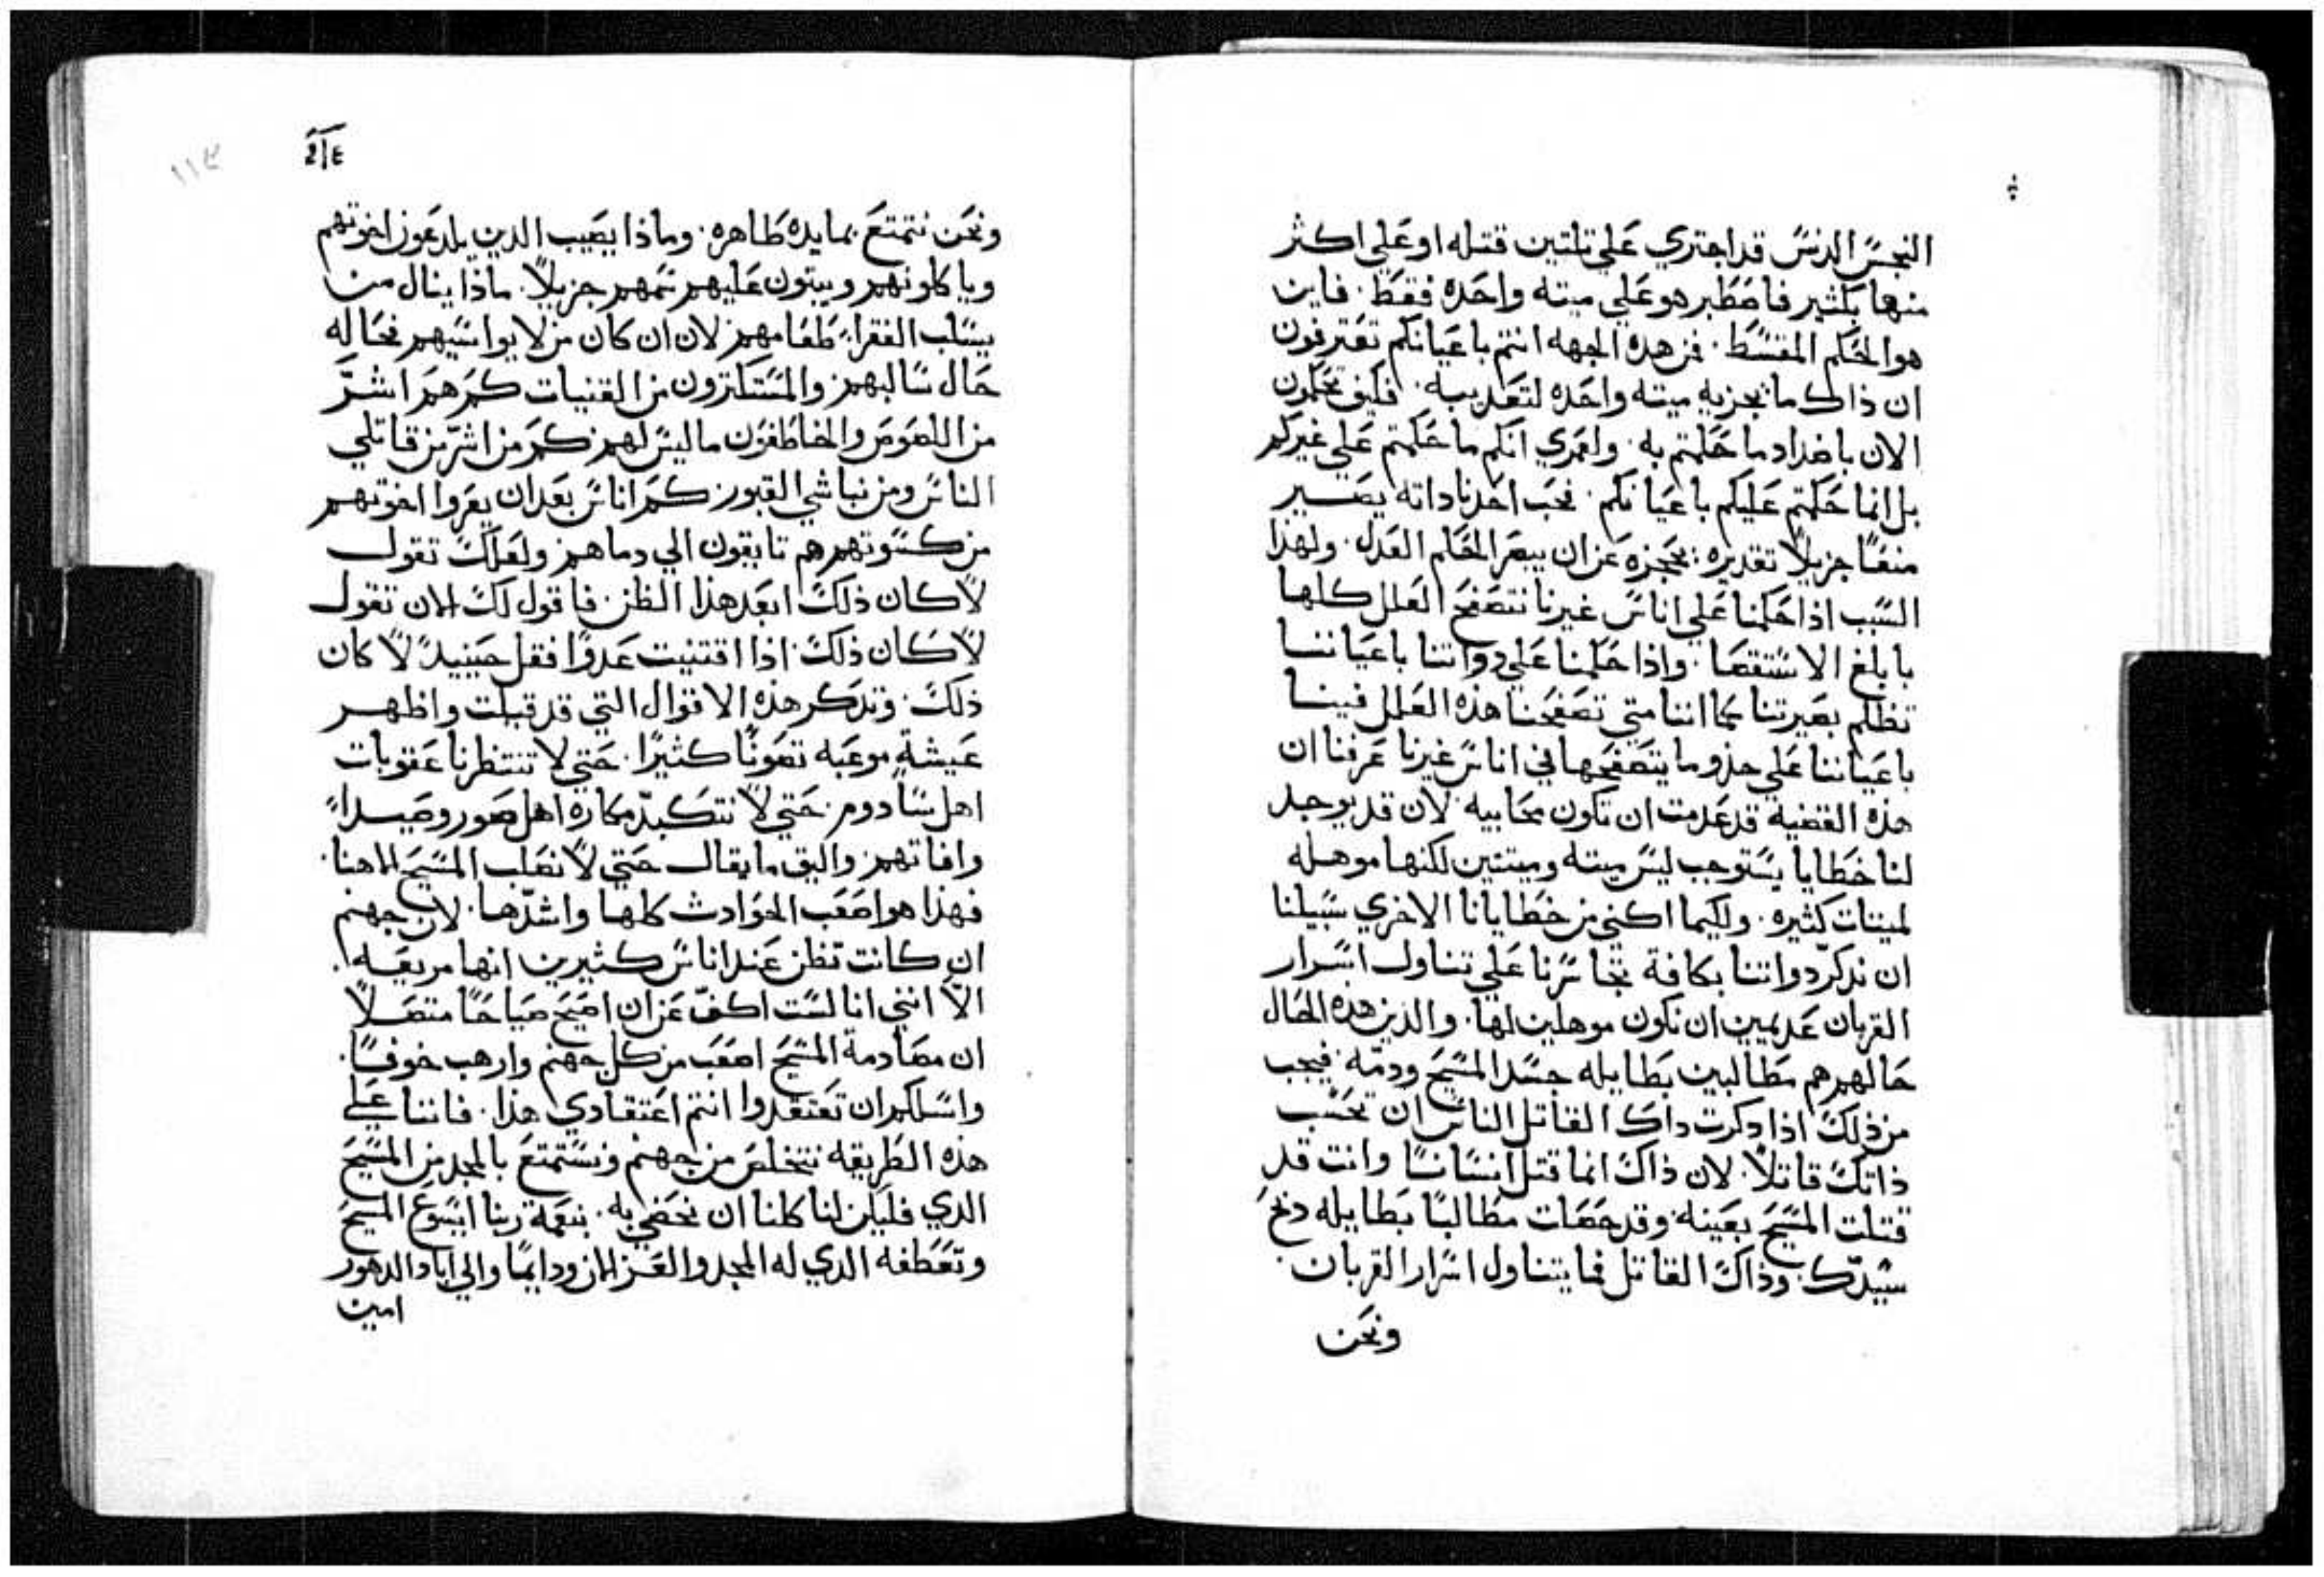 النجس الدنس قد اجتري علي تلتين قتله او علي اكثر
منها بكثير فاضطبر هو علي ميته واحده فقط. فاين
هو الحكم المقسط. فمن هده الجهه انتم باعيانكم تعترفون
ان ذاك ما تجزيه ميته واحده لتعديبه. فكيف تحكمون
الان باضداد ما حكمتم به. ولعمري انكم ما حكمتم علي غيركم
بل انما حكمتم عليكم باعيانكم. فحب احدنا داته يصير
منعًا جزيلاً تقديره. يحجزه عن ان يبصر الحكم العدل. ولهذا
السبب اذا حكمنا علي اناس غيرنا نتصفح العلل كلها
بابلغ الاستقصا. واذا حكمنا علي دواتنا باعياننا
تظلم بصيرتنا كما اننا متي تصفحنا هذه العلل فينا
باعياننا علي حذو ما يتصفحها في اناس غيرنا عرفنا ان
هذه القضية قد عدمت ان تكون محابيه. لان قد يوجد
لنا خطايا يستوجب ليس ميته وميتتين لكنها موهله
لميتات كثيره. ولكيما اكني من خطايانا الاخري سبيلنا
ان ندكر دواتنا بكافة تجاسرنا علي تناول اسرار
القربان عديمين ان نكون موهلين لها. والذين هده الحال
حالهم هم مطالبين بطايله جسد المسيح ودمه. فيجب
من ذلك اذا دكرت داك القاتل الناس ان تحسب
ذاتك قاتلاً. لان ذاك انما قتل انسانًا وانت قد
قتلت المسيح بعينه. وقد حصلت مطالبًا بطايله دبح
سيدك. وذاك القاتل فما يتناول اسرار القربان.
ونحن
٢١٤
١١٢
ونحن نتمتع بمايده طاهره. وماذا يصيب الدين يلدعون اخوتهم
وياكلونهم ويبتون عليهم سمهم جزيلاً. ماذا ينال من
يسلب الفقراء طعامهم لان ان كان من لا يواسيهم فحاله
حال سالبهم. والمستكترون من القنيات كم هم اشر
من اللصوص والخاطفون ما ليس لهم كم من اشر من قاتلي
الناس ومن نباشي القبور. كم اناس بعد ان يعروا اخوتهم
من كسوتهم هم تايقون الي دماهم. ولعلك تقول
لا كان ذلك ابعد هذا الظن. فاقول لك الان تقول
لا كان ذلك. اذا اقتنيت عدوًا فقل حينيد لا كان
ذلك. وتدكر هذه الاقوال التي قد قيلت واظهر
عيشة موعبه تصونًا كثيرًا. حتي لا تنتظرنا عقوبات
اهل سادوم. حتي لا نتكبد مكاره اهل صور وصيدا
وافاتهم. واليق ما يقال حتي لا نصلب المسيح الاهنا.
فهذا هو اصعب الحوادث كلها واشدها. لان جهنم
ان كانت تظن عند اناس كثيرين انها مريعه.
الا انني انا لست اكف عن ان اصيح صياحًا متصلاً
ان مصادمة المسيح اصعب من كل جهنم وارهب خوفًا.
واسلكم ان تعتقدوا انتم اعتقادي هذا. فاننا علي
هذه الطريقه نتخلص من جهنم ونستمتع بالمجد من المسيح
الدي فليكن لنا كلنا ان نحضي به. بنعمة ربنا ايسوع المسيح
وتعطفه الدي له المجد والعز الان ودايمًا والي اباد الدهور
امين